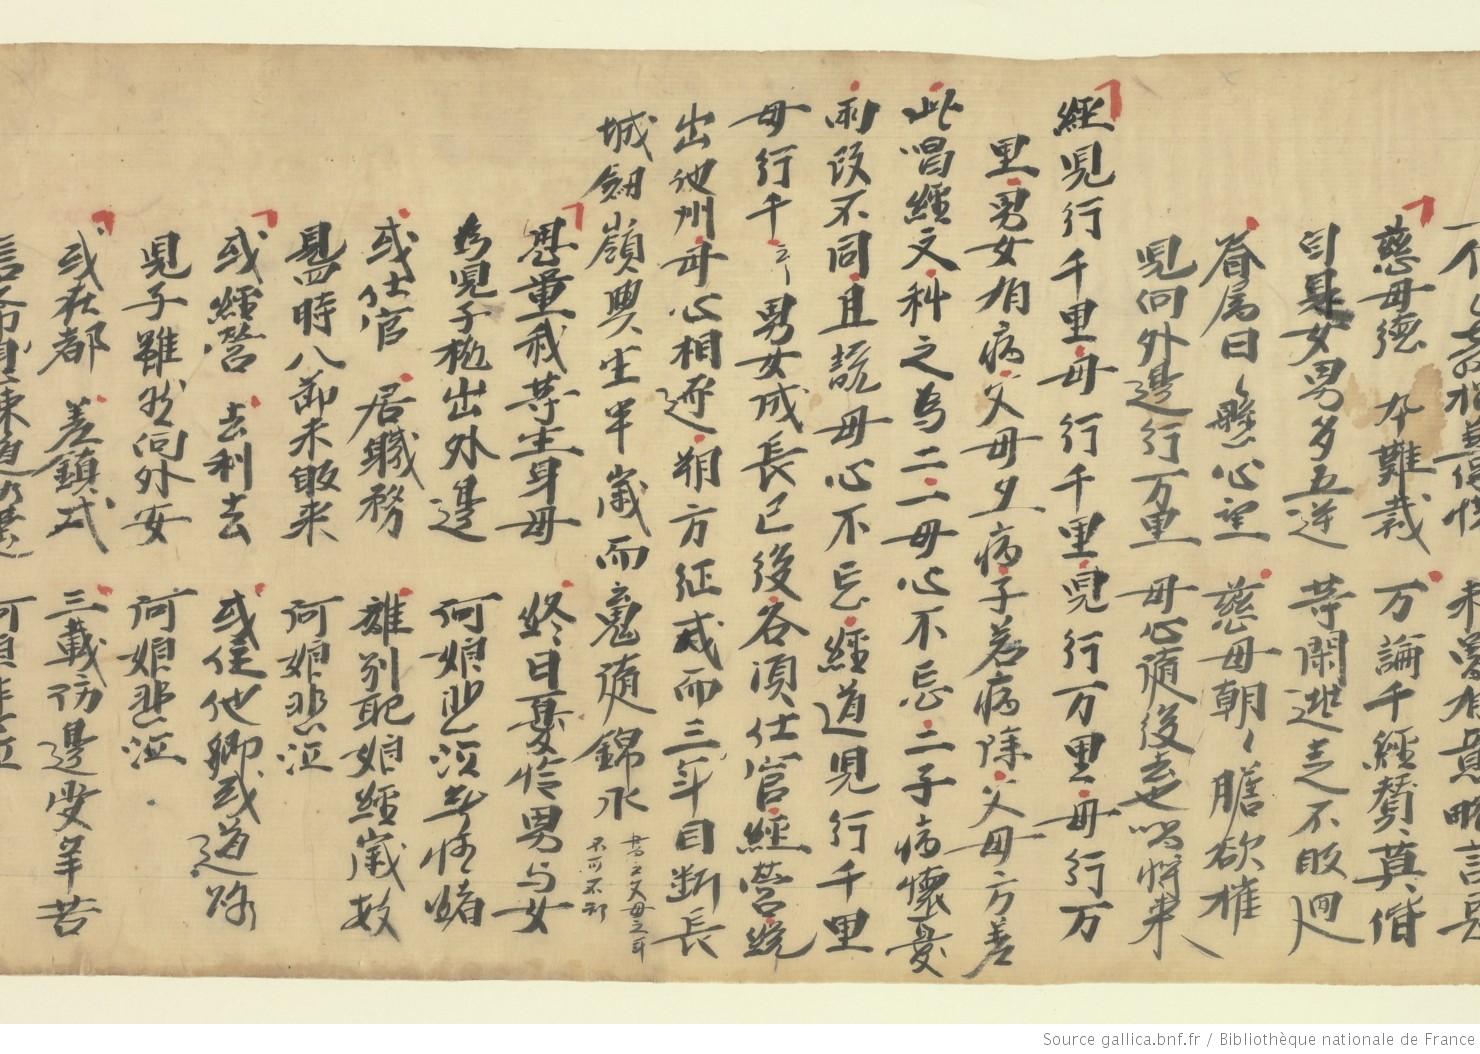 慈母德　卒難裁　万論千經贊莫偕
男女多五逆　等閑逃走不皈迴
眷属日〻懸心望　慈母朝〻膽欲摧
児向外邊行万里　母心隨後去也唱將来
經児行千里母行千里児行万里母行万
里男女有病父母亦病子若病除父母方差
此唱經文科之為二一母心不忘二子病懷憂
兩段不同且說母心不忘經道児行千里
母行千里男女成長已後各須仕官經營縱
出他州母心相逐朔方征戍而三年目断長
城劒嶺興生半歲而魂隨錦水
書云父母之年
不可不知
思量我等生身母　終日憂怜男与女
為児子拋出外邊　阿娘悲泣無情緒
或仕官　居職務　離別耶娘經歲數
見四時八節未皈来　阿娘悲泣
或經營　去利去　或住他鄉或道路
児子雖然向外安　阿娘悲泣
或在都　差鎮戍　三載防邊受辛苦